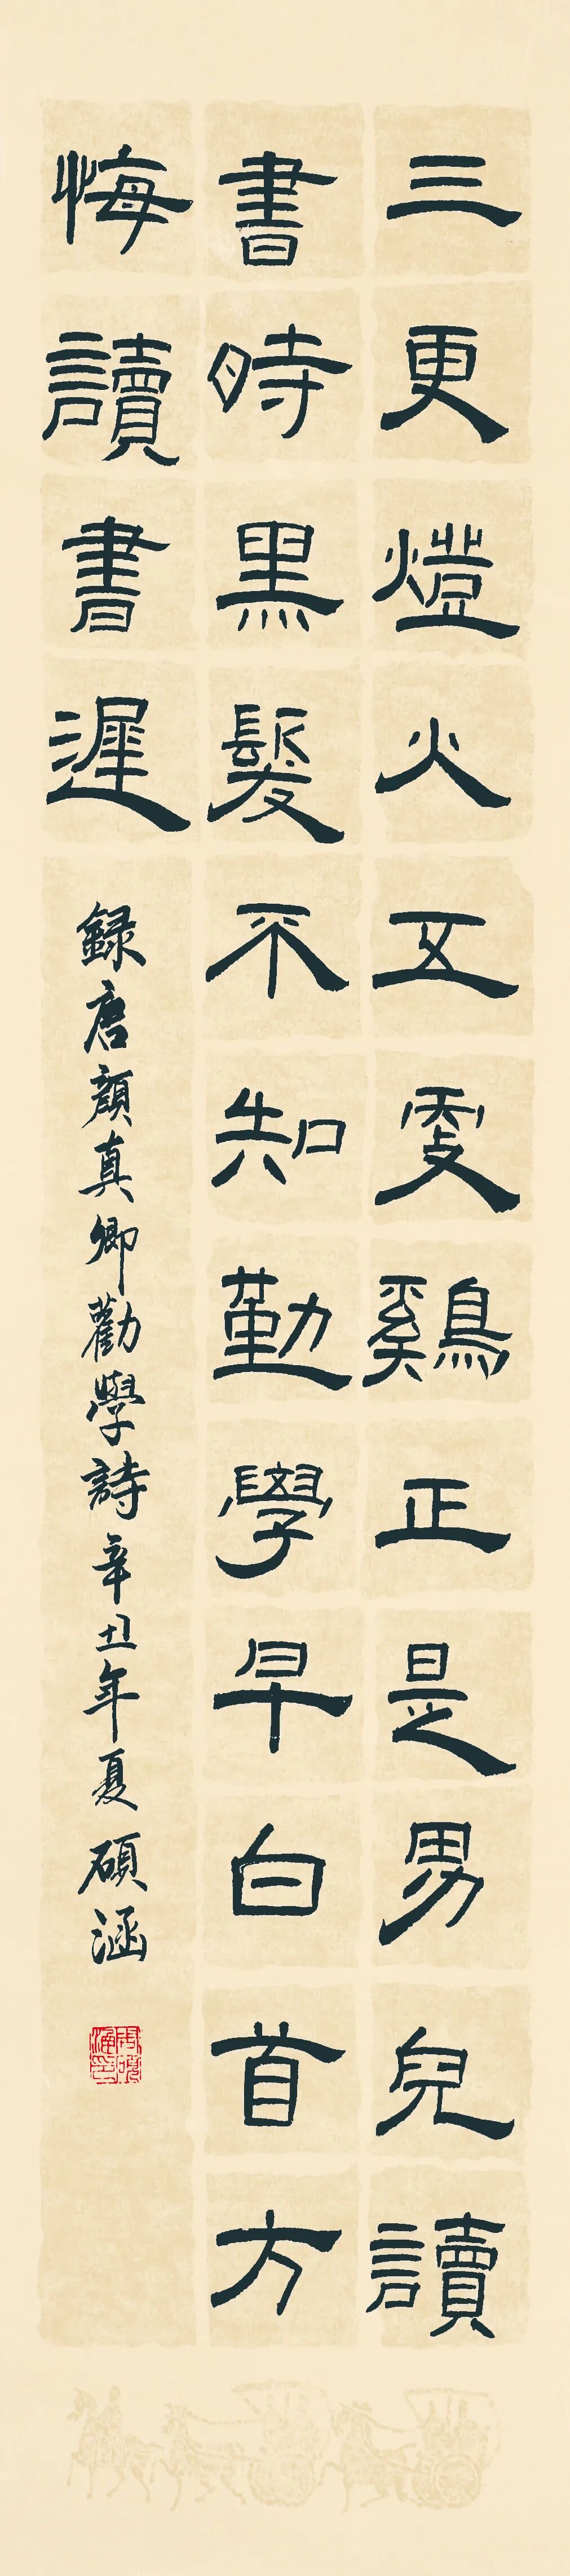 三更燈火五更鷄正是男兒讀
書時黑髮不知勤學早白首方
悔讀書遲
録唐顔真卿勸學詩辛丑年夏碩涵